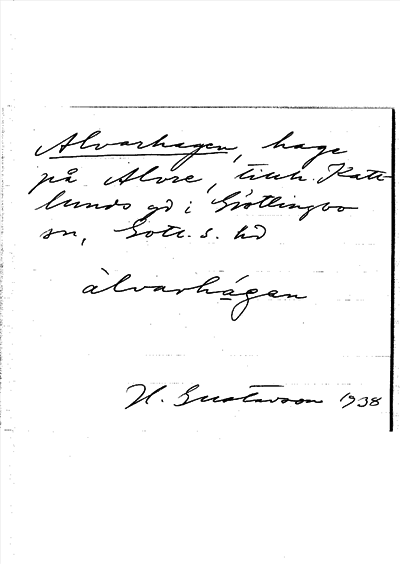 Alvarhagen, hage
på Alvre, tillh. Katt-
lunds gd i Grötlingbo
sn, Gotl. s. hd
àlvarhá̱gen
H. Gustavson 1938